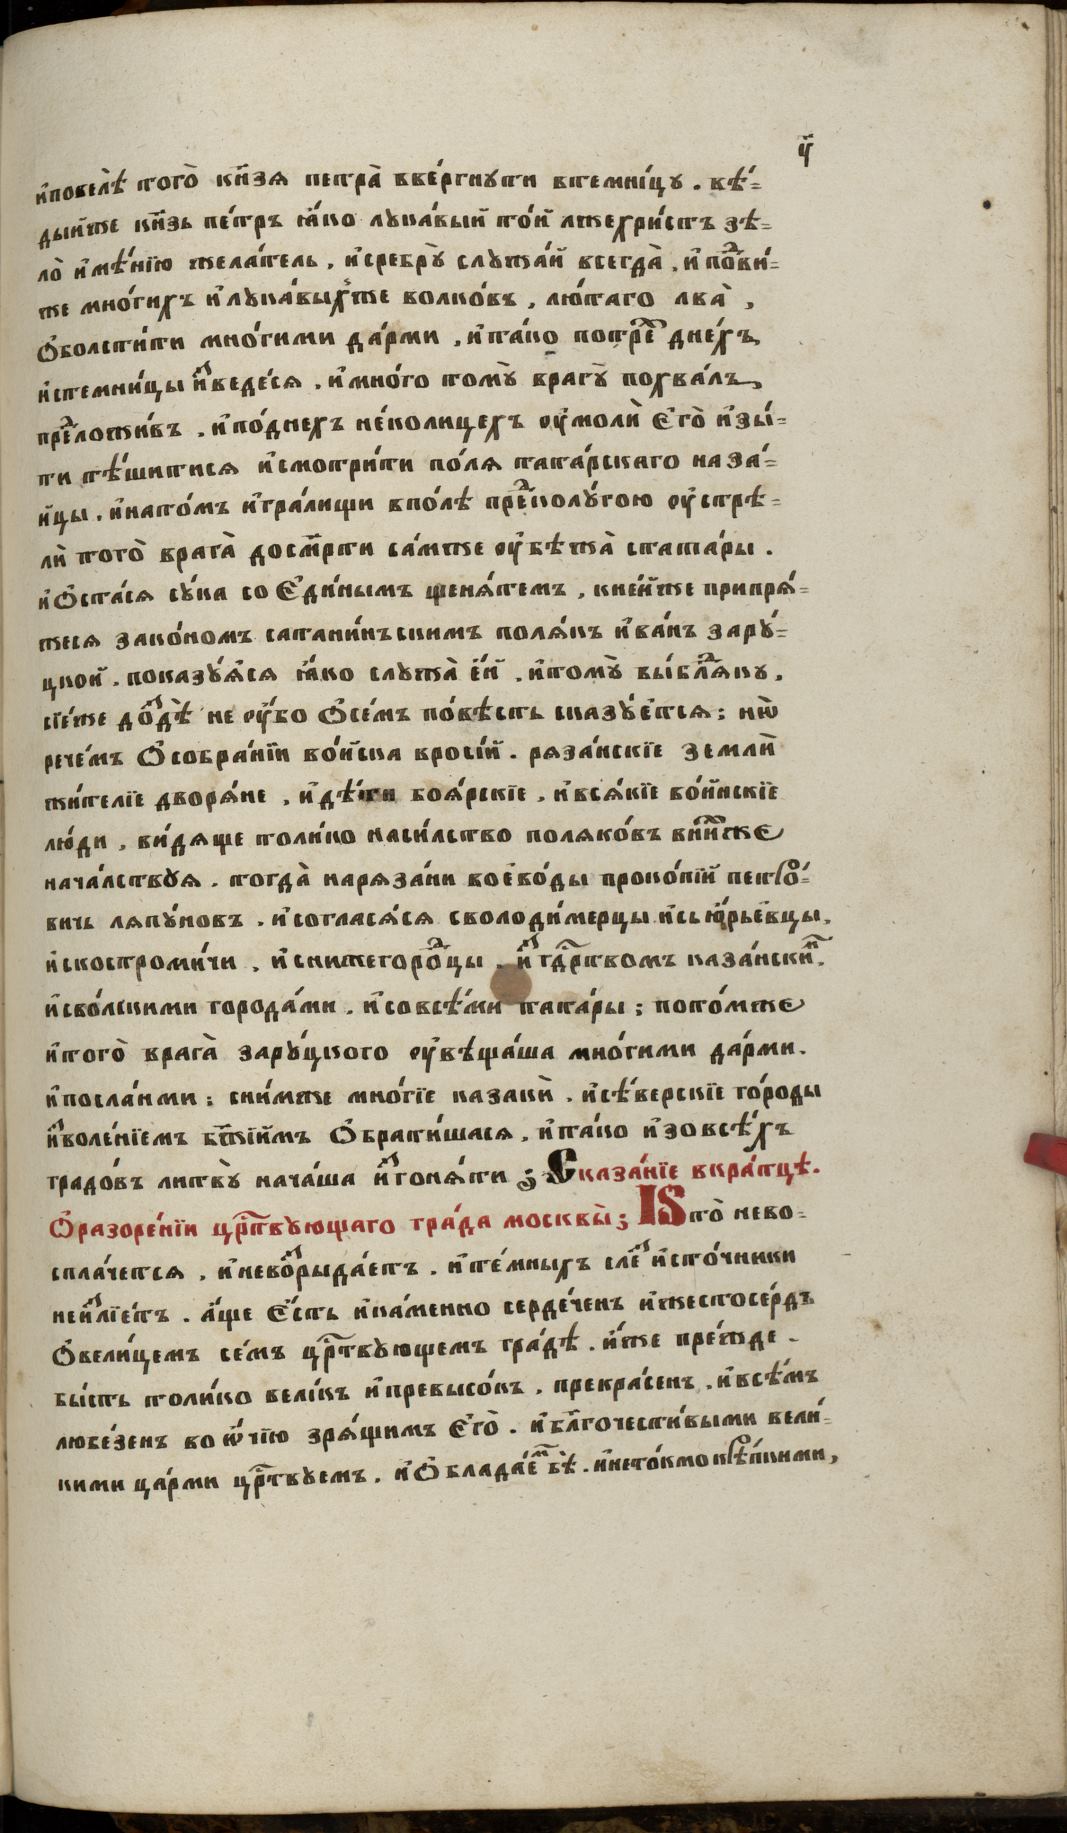 ч҃
и҆повелѣ̀ того̀ кн҃зя петра̀ вве́ргнути втемни́цу. вѣ́-
дый же кн҃зь пе́тръ ꙗ҆́ко лука́вый то́й лжехри́стъ зѣ-
ло̀ и҆мѣ́нїю жела́тель, и҆сребрꙋ̀ слꙋжа́й всегда̀, и҆подви́-
же мно́гихъ и҆лука́выхже волко́въ, лю́таго лва̀,
ѻ҆болсти́ти мно́гими да́рми, и҆та́ко потрᲂ́е дне́хъ
и҆стемни́цы и҆зведе́ся, и҆мно́го томꙋ̀ врагꙋ̀ похва́лъ,
предложи́въ, и҆по́днехъ не́колицехъ ѹ҆моли̇̀ є҆го̀ и҆зы́-
ти тѣ́шитися и҆смотри́ти по́ля тата́рскаго на за́-
йцы, и҆нато́мъ и҆гра́лищи впо́лѣ предколу́гою ѹ҆стрѣ-
ли̇̀ того̀ врага̀ досме́рти са́мже ѹ҆бѣжа̀ стата́ры.
и҆ѻ҆ста́ся сꙋ́ка со є҆ди́нымъ щеня́темъ, кне́йже припря́-
жеся зако́номъ сатани́нъскимъ поля́къ и҆ва́нъ зарꙋ́-
цкой, показꙋ́яся ꙗ҆́ко слꙋжа̀ є҆́й, и҆томꙋ̀ вы́блядкꙋ,
сїе́же до́здѣ не ѹ҆́бо ѻ҆се́мъ по́вѣсть сказꙋ́ется; нѡ̀
рече́мъ ѻ҆собра́нїи во́йска вроси́й. ряза́нскїе земли̇̀
жи́телїе дворя́не, и҆дѣ́ти боя́рскїе, и҆вся́кїе во́инскїе
лю́ди, ви́дяще толи́ко наси́лство поляко́въ вни́хже
нача́лствꙋя. тогда̀ наряза́ни воево́ды проко́пїй петро́-
вичь ляпꙋно́въ, и҆согласа́ся сволоди́мерцы и҆сью́рьевцы,
и҆скостроми́чи, и҆снижегоро́дцы, и҆ згдⷭ҇рствомъ каза́нскимъ,
и҆сво́лскими города́ми, и҆совсѣ́ми тата́ры; пото́мже
и҆того̀ врага̀ зарꙋ́цкого ѹ҆вѣща́ша мно́гими да́рми.
и҆посла́ими; сни́мже мно́гїе казаки̇̀, и҆сѣ́верскїе го́роды
и҆зволе́нїемъ бж҃їимъ ѻ҆брати́шася, и҆та́ко и҆зовсѣ́хъ
градо́въ литвꙋ̀ нача́ша и҆згоня́ти; Сказа́нїе вкра́тцѣ.
ѻ҆разоре́нїи црⷭ҇твꙋющаго гра́да москвы̀; Кто̀ нево-
спла́чется, и҆невозрыда́етъ, и҆те́мныхъ слез и҆сто́чники
неи҆злїе́тъ. а҆́ще є҆́сть и҆ка́менно сердече́нъ и҆жестосе́рдъ
ѻ҆вели́цемъ се́мъ црⷭ҇твꙋющемъ гра́дѣ. и҆́же пре́жде
бы́сть толи́ко вели́къ и҆превысо́къ, прекра́сенъ, и҆всѣ́мъ
любе́зенъ во ѻ҆́чїю зря́щимъ є҆го̀. и҆благочести́выми вели́-
кими ца́рми црⷭ҇твꙋемъ, и҆ѻ҆блада́емъ бѣ̀. и҆нето́кмо крѣ́пкими,